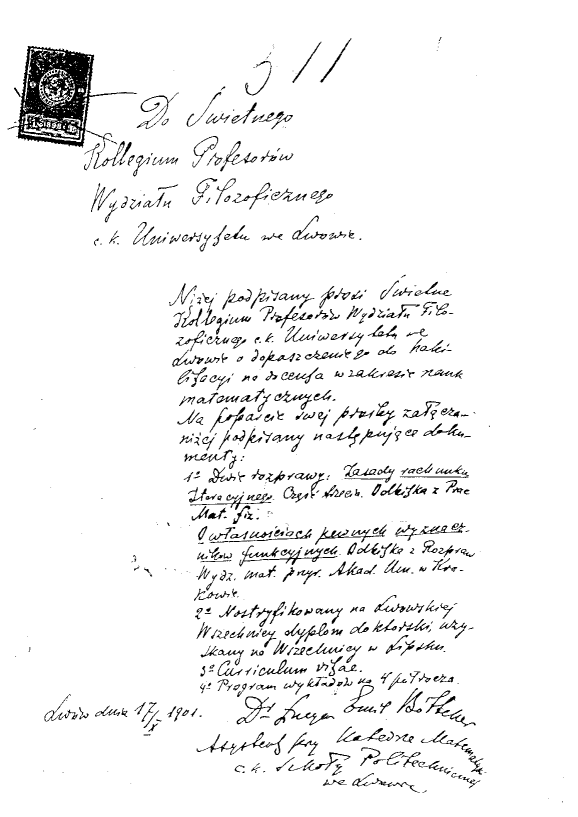 311
Do Świetnego
Kollegium Profesorów
Wydziału Filozoficznego
c. k. Uniwersytetu we Lwowie.
Niżej podpisany prosi Świetne
Kollegium Profesorów Wydziału Filo-
zoficznego c. k. Uniwersytetu we
Lwowie o dopuszczenie go do habi-
litacyi na docenta w zakresie nauk
matematycznych.
Na poparcie swej prośby załącza
niżej podpisany następujące doku-
menty:
1º Dwie rozprawy: Zasady rachunku
iteracyjnego. Część trzecia. Odbitka z Prac
Mat. fiz.
O własnościach pewnych wyznacz-
ników funkcyjnych. Odbitka z Rozpraw
Wydz. mat. przyr. Akad. Um. w Kra-
kowie.
2º Nostryfikowany na Lwowskiej
Wszechnicy dyplom doktorski, uzy-
skany na Wszechnicy w Lipsku.
3º Curriculum vitae.
4º Program wykładów na 4 półrocza.
Lwów dnia 17/X 1901.
Dr Lucyan Emil Böttcher
Asystent przy Katedrze Matematyki
c. k. Szkoły Politechnicznej
we Lwowie.